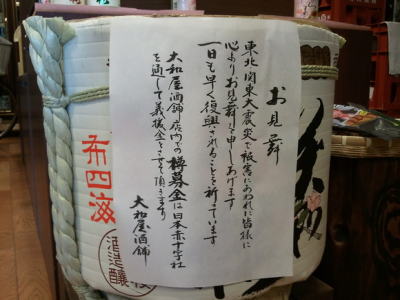 お見舞
東北関東大震災で被害にあわれた皆様に
心よりお見舞を申しあげます
一日も早く復興されることを祈っています
大和屋酒舗店内での樽募金は日本赤十字社
を通して義援金とさせて頂きます
大和屋酒舗
布四海
醸造